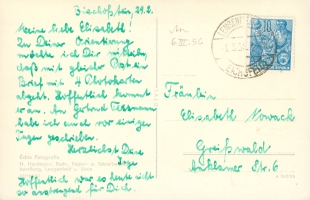 Bischofstal, 29.2.
Meine liebe Elisabeth!
Zu Deiner Orientierung
möchte ich Dir mitteilen,
daß mit gleicher Post ein
Brief mit 4 Photokarten
abgeht. Hoffentlich kommt
er an. An Gertrud
habe ich auch vor einigen
Tagen geschrieben.
Herzlichst Deine
Inge
Hoffentlich war es heute nicht
so anstrengend für Dich.
Echte Fotografie
An
6.III.56
Fräulein
Elisabeth Nowack
Greifswald
Anklamer Str. 6